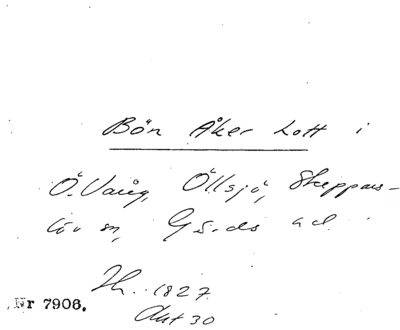 Bön Åker Lott i
Ö. Vång, Öllsjö, Skeppars-
löv sn, Gärds hd.
H. 1827
Akt 30
Nr 7906.